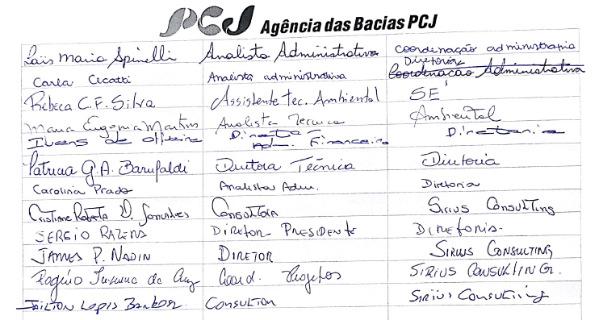 PCJ Agência das Bacias PCJ
Laís Maria Spinelli Analista Administrativa coordenação administrativa
Carla Analista administrativa Diretoria Coordenação Administrativa
Rebeca C.F. Silva Assistente Tec. Ambiental SE
Maria Eugenia Martins Analista Tecnico Ambiental
Ivens de Oliveira Diretor Adm. Financeiro Diretoria
Patricia G.A. Barufaldi Diretora Técnica Diretoria
Carolina Prado Analista Adm. Diretoria
Cristiane Consultora Sirius Consulting
SERGIO RAZERA DIRETOR PRESIDENTE DIRETORIA.
JAMES P. NADIN DIRETOR SIRIUS CONSULTING
Rogério Coord. Projetos SIRIUS CONSULTING.
CONSULTOR SIRIUS CONSULTING